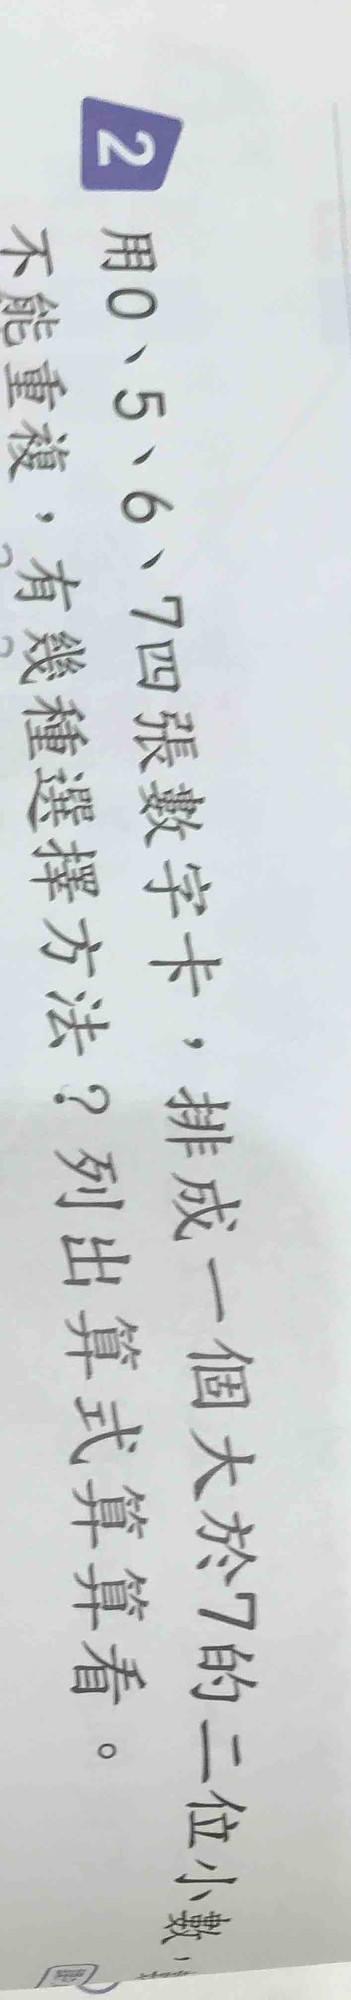 2 用0、5、6、7四張數字卡，排成一個大於7的二位小數，
不能重複，有幾種選擇方法？列出算式算算看。